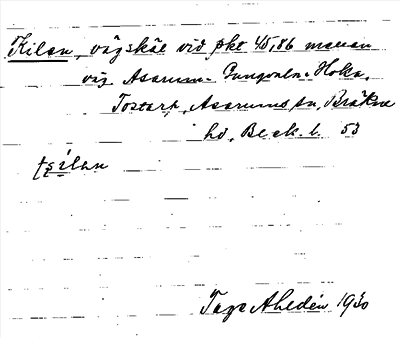 Kilan, vägskäl vid pkt 45,86 mellan
väg Asarum - Gungvala - Hoka,
Tostarp, Asarums sn, Bräkne
hd, Blek. l. 53
tʃílan
Tage Ahldén 1930